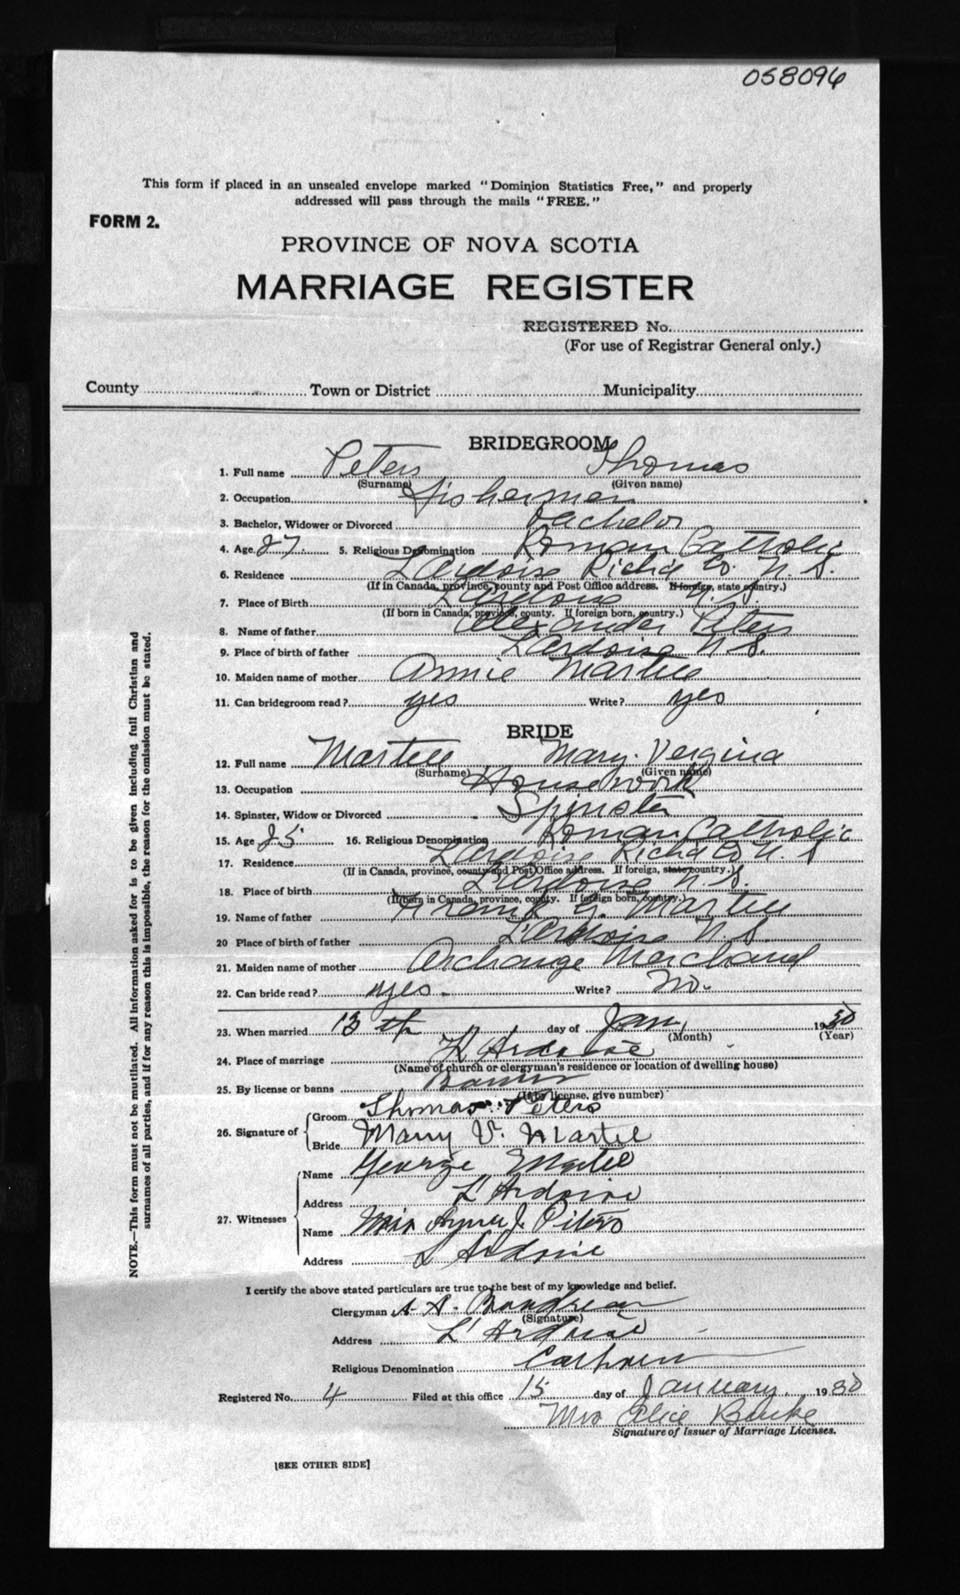 058096
This form if placed in an unsealed envelope marked "Dominion Statistics Free," and properly
addressed will pass through the mails "FREE."
FORM 2.
PROVINCE OF NOVA SCOTIA
MARRIAGE REGISTER
REGISTERED No.
(For use of Registrar General only.)
County Town or District Municipality
BRIDEGROOM
1. Full name Peters Thomas
(Surname) (Given name)
2. Occupation Fisherman
3. Bachelor, Widower or Divorced Bachelor
4. Age 27 5. Religious Denomination Roman Catholic
6. Residence L'Ardoise Richd Co. N. S.
(If in Canada, province, county and Post Office address. If foreign, state country.)
7. Place of Birth L'Ardoise N. S.
(If born in Canada, province, county. If foreign born, country.)
8. Name of father Alexander Peters
9. Place of birth of father L'Ardoise N. S.
10. Maiden name of mother Annie Martell
11. Can bridegroom read? yes Write? yes
BRIDE
12. Full name Martell Mary Vergina
(Surname) (Given name)
13. Occupation Housework
14. Spinster, Widow or Divorced Spinster
15. Age 25 16. Religious Denomination Roman Catholic
17. Residence L'Ardoise Richd Co N. S
(If in Canada, province, county and Post Office address. If foreign, state country.)
18. Place of birth L'Ardoise N. S.
(If born in Canada, province, county. If foreign born, country.)
19. Name of father Frank G. Martell
20 Place of birth of father L'Ardoise N. S.
21. Maiden name of mother Archange Merchand
22. Can bride read? yes. Write? No.
23. When married 13 th day of Jan, 1930
(Month) (Year)
24. Place of marriage L'Ardoise
(Name of church or clergyman's residence or location of dwelling house)
25. By license or banns Banns
(If by license, give number)
26. Signature of Groom Thomas Peters
Bride Marry V. Martel
27. Witnesses Name George Martell
Address L'Ardoise
Name Miss Agnes J. Peters
Address L'Ardoise
I certify the above stated particulars are true to the best of my knowledge and belief.
Clergyman A. A. Boudreau
(Signature)
Address L'Ardoise
Religious Denomination
Registered No. 4 Filed at this office 15 day of January, 1930
Mrs Alice Burke
Signature of Issuer of Marriage Licenses.
[SEE OTHER SIDE]
NOTE.—This form must not be mutilated. All information asked for is to be given including full Christian and
surnames of all parties, and if for any reason this is impossible, the reason for the omission must be stated.